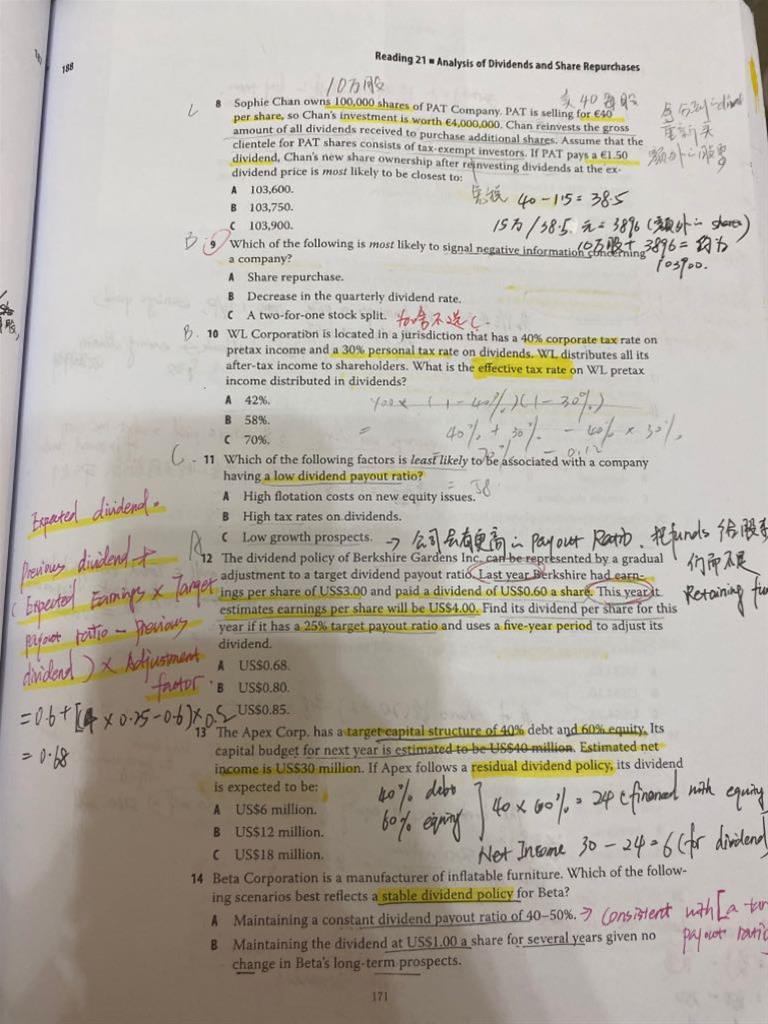 188
Reading 21 ■ Analysis of Dividends and Share Repurchases
10万股
L 8 Sophie Chan owns 100,000 shares of PAT Company. PAT is selling for €40
per share, so Chan's investment is worth €4,000,000. Chan reinvests the gross
amount of all dividends received to purchase additional shares. Assume that the
clientele for PAT shares consists of tax-exempt investors. If PAT pays a €1.50
dividend, Chan's new share ownership after reinvesting dividends at the ex-
dividend price is most likely to be closest to:
重新买
A 103,600.
40 - 1.5 = 38.5
B 103,750.
15万/38.5 元 = 3896 (额外 shares)
C 103,900.
10万股 + 3896 = 约为
103900.
B 9 Which of the following is most likely to signal negative information concerning
a company?
A Share repurchase.
B Decrease in the quarterly dividend rate.
C A two-for-one stock split. 为啥不选C.
B. 10 WL Corporation is located in a jurisdiction that has a 40% corporate tax rate on
pretax income and a 30% personal tax rate on dividends. WL distributes all its
after-tax income to shareholders. What is the effective tax rate on WL pretax
income distributed in dividends?
A 42%.
(1-40%)(1-30%)
B 58%.
= 40% + 30% - 40% × 30%
C 70%.
- 0.12
C. 11 Which of the following factors is least likely to be associated with a company
having a low dividend payout ratio?
= 58
A High flotation costs on new equity issues.
B High tax rates on dividends.
C Low growth prospects. → 公司会有更高 payout Ratio. 把funds 给股东
们而不是
Retaining
A 12 The dividend policy of Berkshire Gardens Inc. can be represented by a gradual
adjustment to a target dividend payout ratio. Last year Berkshire had earn-
ings per share of US$3.00 and paid a dividend of US$0.60 a share. This year it
estimates earnings per share will be US$4.00. Find its dividend per share for this
year if it has a 25% target payout ratio and uses a five-year period to adjust its
dividend.
A US$0.68.
B US$0.80.
C US$0.85.
Expected dividend.
Previous dividend +
(Expected Earnings × Target
payout ratio - Previous
dividend) × Adjustment
factor
= 0.6 + [(4 × 0.25 - 0.6) × 0.2
= 0.68
13 The Apex Corp. has a target capital structure of 40% debt and 60% equity. Its
capital budget for next year is estimated to be US$40 million. Estimated net
income is US$30 million. If Apex follows a residual dividend policy, its dividend
is expected to be:
40% debt
60% equity
40 × 60% = 24 (financed with equity
A US$6 million.
B US$12 million.
C US$18 million.
Net Income 30 - 24 = 6 (for dividend)
14 Beta Corporation is a manufacturer of inflatable furniture. Which of the follow-
ing scenarios best reflects a stable dividend policy for Beta?
A Maintaining a constant dividend payout ratio of 40–50%. → Consistent with [a
payout ratio
B Maintaining the dividend at US$1.00 a share for several years given no
change in Beta's long-term prospects.
171